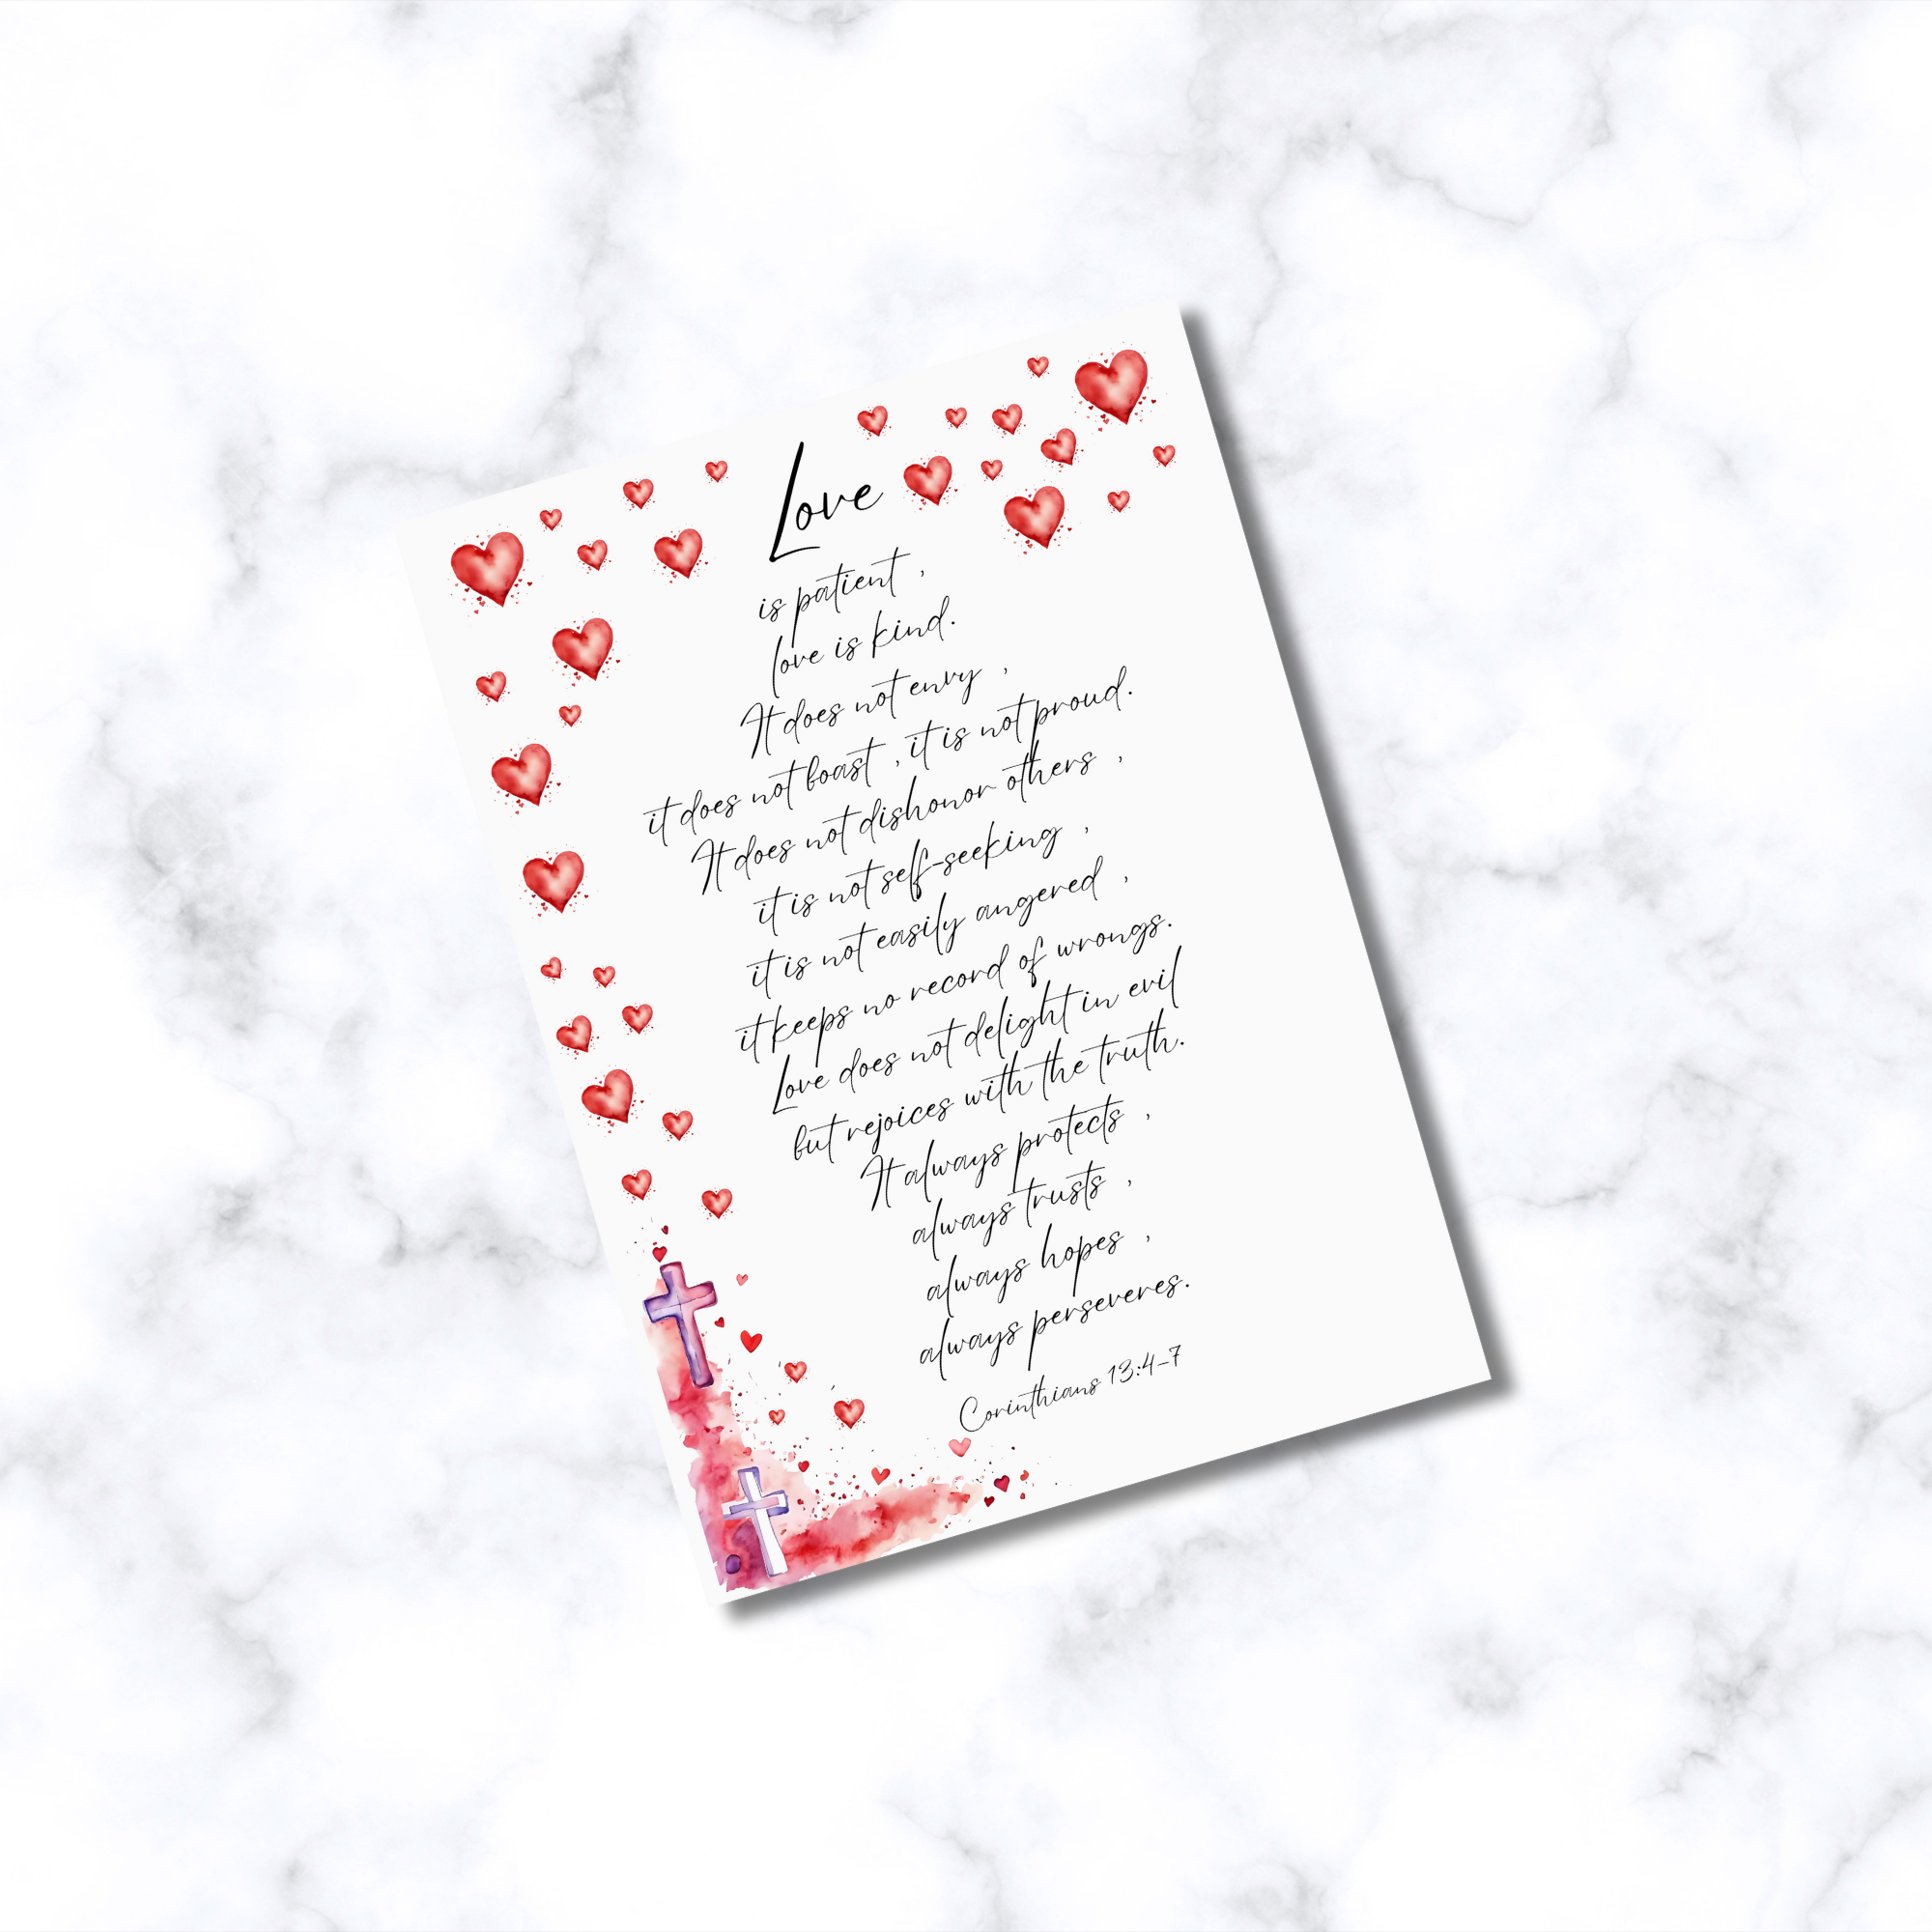 Love
is patient ,
love is kind.
It does not envy ,
it does not boast , it is not proud.
It does not dishonor others ,
it is not self-seeking ,
it is not easily angered ,
it keeps no record of wrongs.
Love does not delight in evil
but rejoices with the truth.
It always protects ,
always trusts ,
always hopes ,
always perseveres.
Corinthians 13:4-7